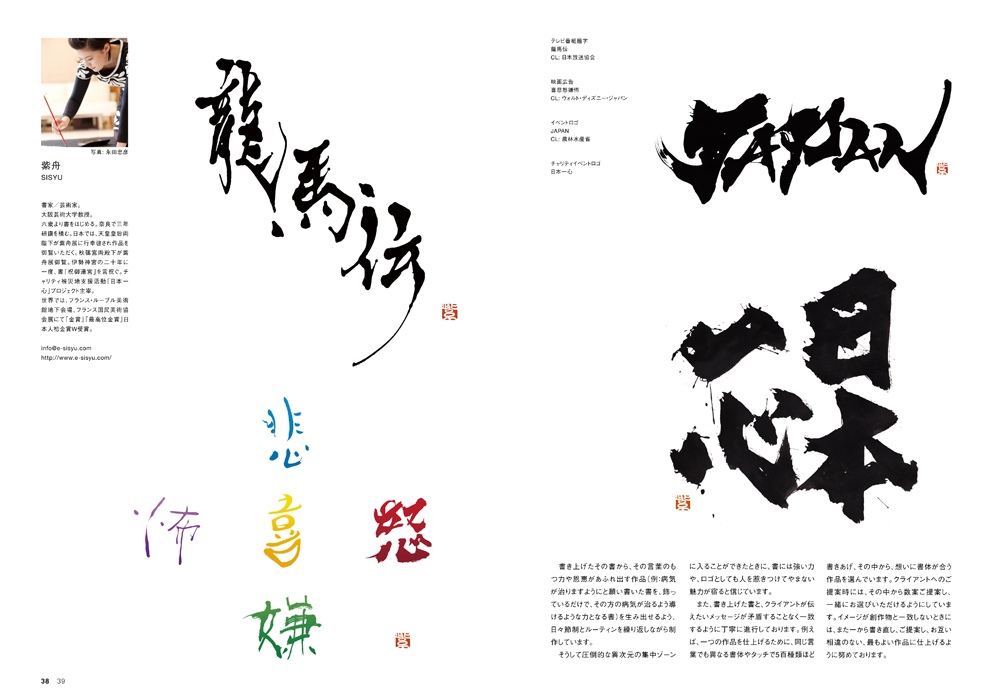 写真：永田忠彦
紫舟
SISYU
書家／芸術家。
大阪芸術大学教授。
六歳より書をはじめる。奈良で三年
研鑽を積む。日本では、天皇皇后両
陛下が紫舟展に行幸啓され作品を
御覧いただく。秋篠宮両殿下が紫
舟展御覧。伊勢神宮の二十年に
一度、書「祝御遷宮」を言祝ぐ。チ
ャリティ被災地支援活動「日本一
心」プロジェクト主宰。
世界では、フランス・ルーブル美術
館地下会場、フランス国民美術協
会展にて「金賞」「最高位金賞」日
本人初金賞W受賞。
info@e-sisyu.com
http://www.e-sisyu.com/
龍馬伝
悲
怖
喜
怒
嫌
38 39
テレビ番組題字
龍馬伝
CL: 日本放送協会
映画広告
喜悲怒嫌怖
CL: ウォルト・ディズニー・ジャパン
イベントロゴ
JAPAN
CL: 農林水産省
チャリティイベントロゴ
日本一心
JAPAN
日本
一心
書き上げたその書から、その言葉のも
つ力や恩恵があふれ出す作品（例：病気
が治りますようにと願い書いた書を、飾っ
ているだけで、その方の病気が治るよう導
けるような力となる書）を生み出せるよう、
日々節制とルーティンを繰り返しながら制
作しています。
そうして圧倒的な異次元の集中ゾーン
に入ることができたときに、書には強い力
や、ロゴとしても人を惹きつけてやまない
魅力が宿ると信じています。
また、書き上げた書と、クライアントが伝
えたいメッセージが矛盾することなく一致
するように丁寧に進行しております。例え
ば、一つの作品を仕上げるために、同じ言
葉でも異なる書体やタッチで5百種類ほど
書きあげ、その中から、想いに書体が合う
作品を選んでいます。クライアントへのご
提案時には、その中から数案ご提案し、
一緒にお選びいただけるようにしていま
す。イメージが創作物と一致しないときに
は、また一から書き直し、ご提案し、お互い
相違のない、最もよい作品に仕上げるよ
うに努めております。